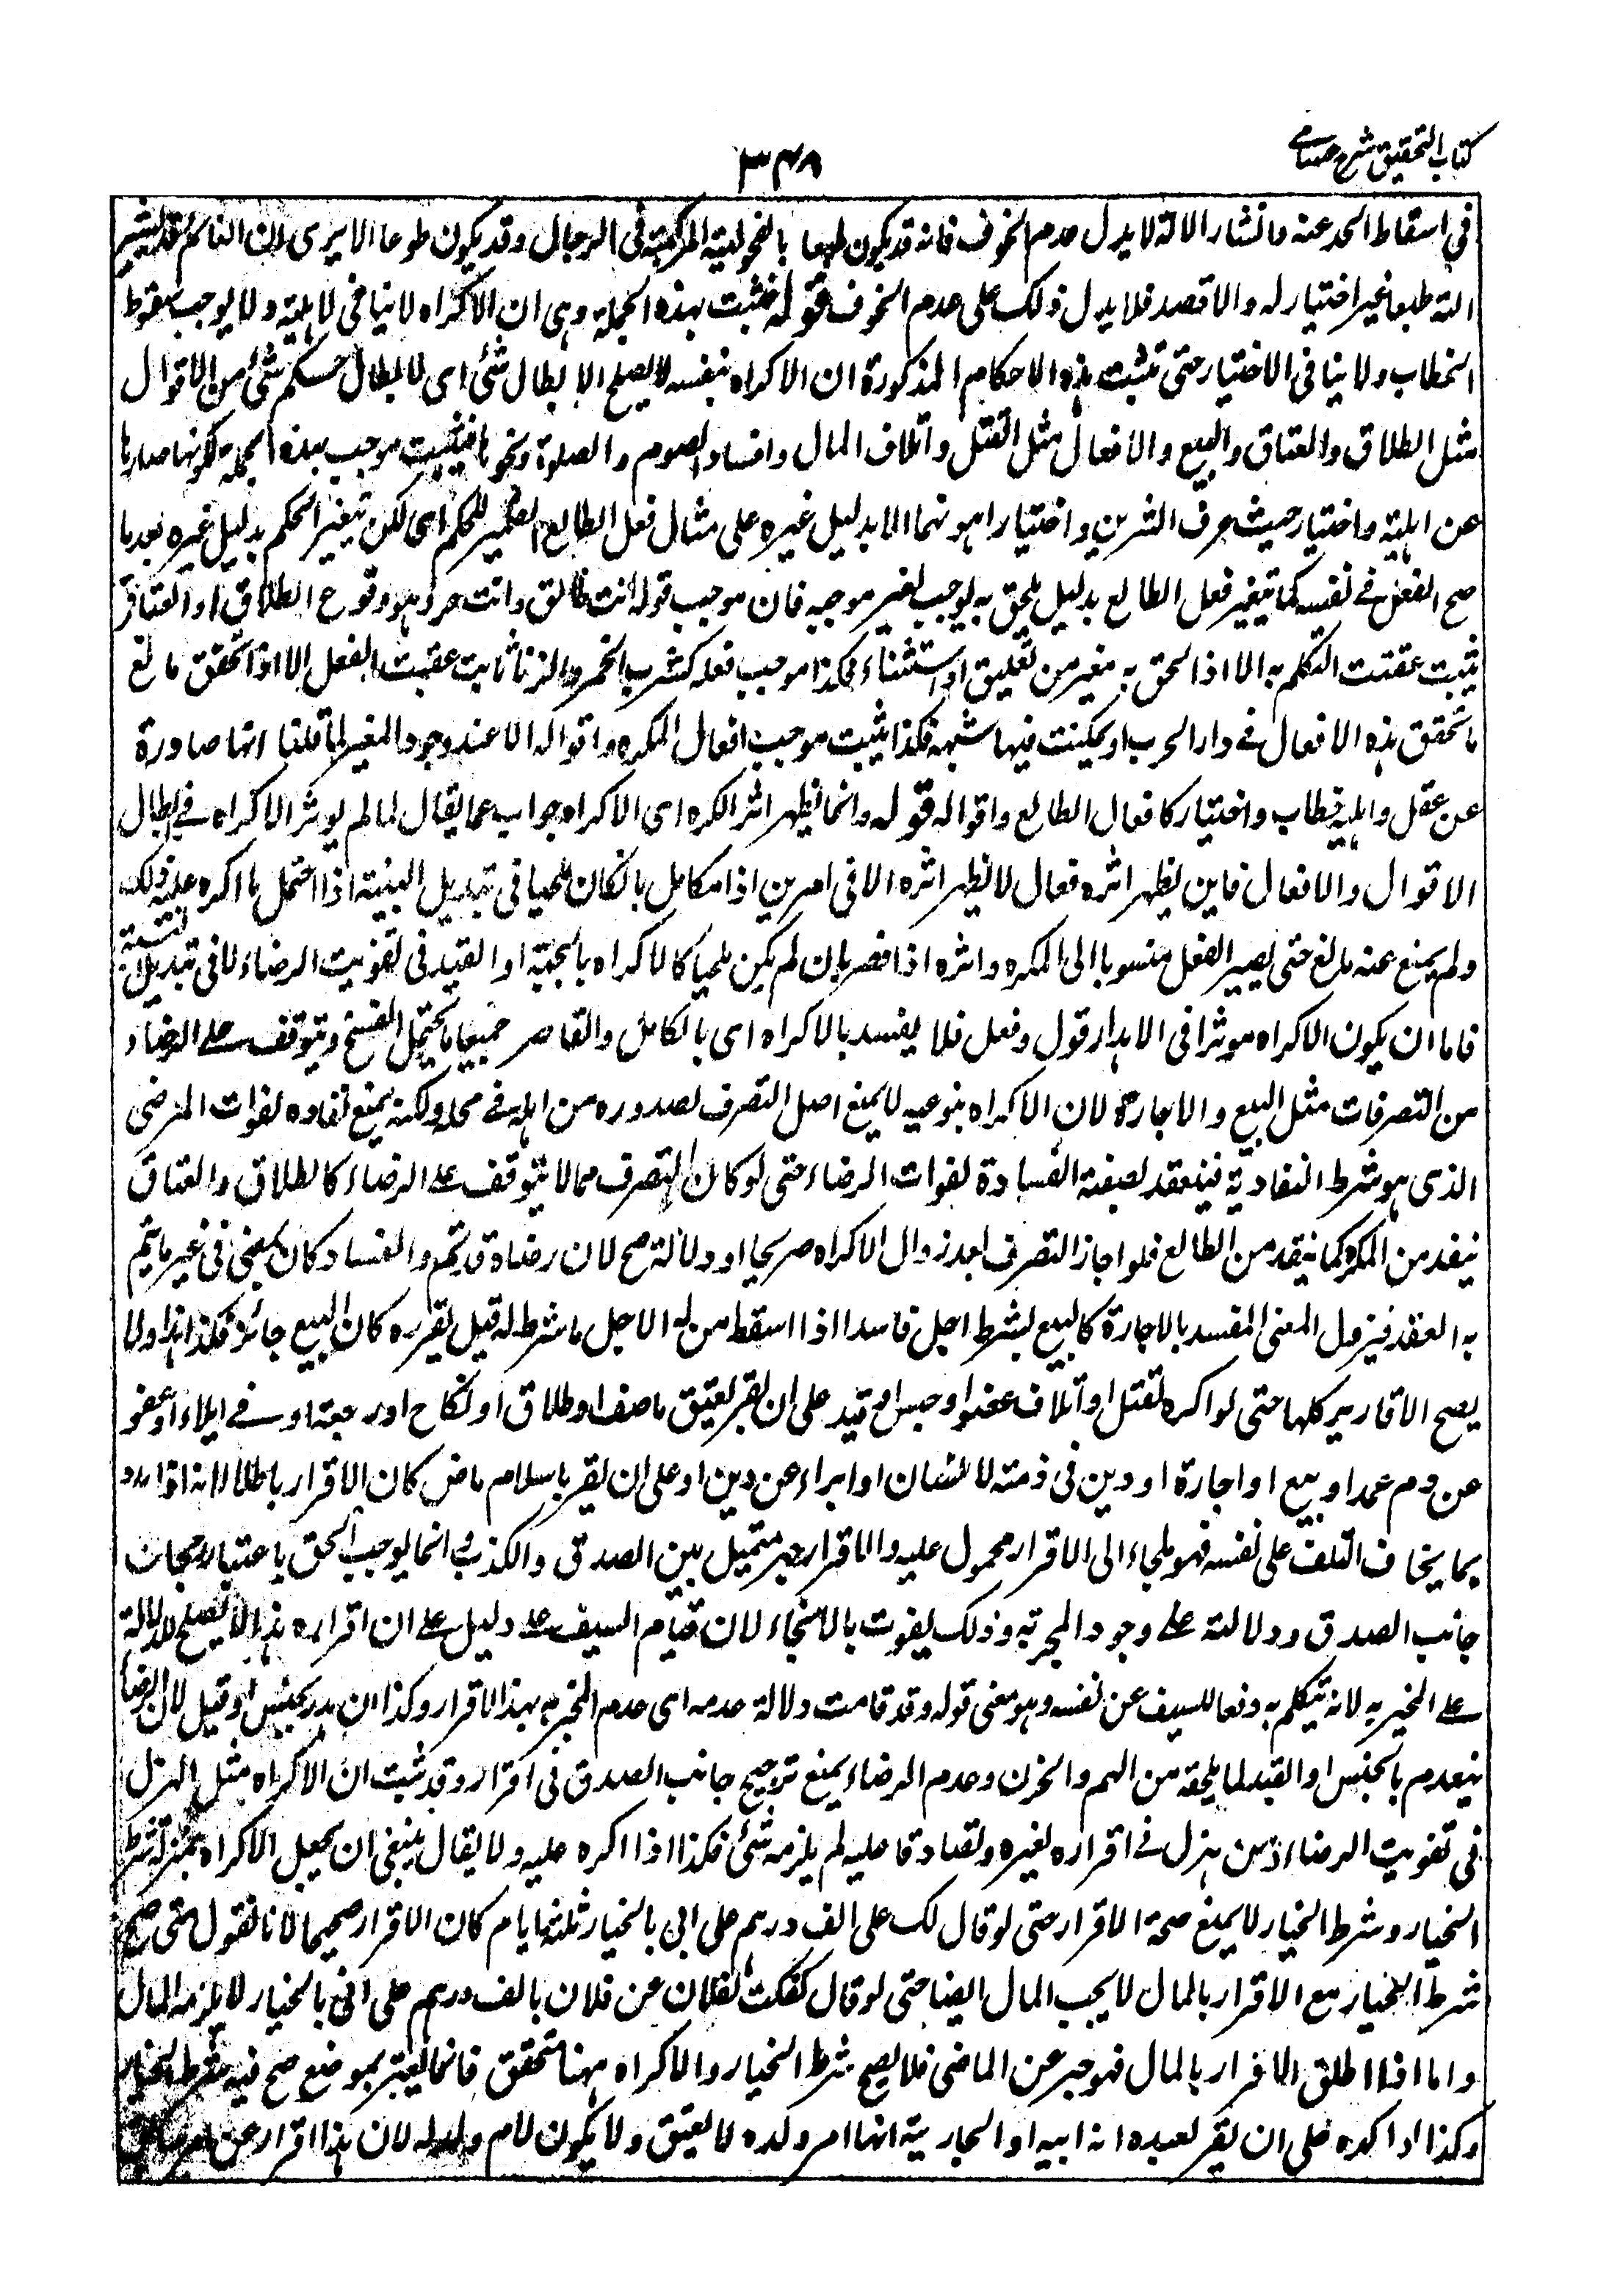 كتاب التحقيق شرح حسامى
٣٤٨
فى اسقاط الحد عنه وانتشار الآلة لا يدل عدم الخوف فانه قد يكون طبعا بالفحولية المركبة فى الرجال وقد يكون طوعا الا يرى ان النائم قد ينتشر
آلته طبعا غير اختيار له ولا قصد فلا يدل ذلك على عدم الخوف قوله فثبت بهذه الجملة وهى ان الاكراه لا ينافى الاهلية ولا يوجب سقوط
الخطاب ولا ينافى الاختيار حتى تثبت هذه الاحكام المذكورة ان الاكراه بنفسه لا يصلح الابطال شئ اى لابطال حكم شئ من الاقوال
مثل الطلاق والعتاق والبيع والافعال مثل القتل واتلاف المال وافساد الصوم والصلوة ونحوها فيثبت موجب بهذه الجملة لكونها صادرة
عن اهلية واختيار حيث عرف الشرين واختيار اهونهما الا بدليل غيره على مثال فعل الطائع الضمير للحكم اى لكن يتغير الحكم بدليل غيره بعد ما
صح الفعل فى نفسه كما يتغير فعل الطائع بدليل يلحق به يوجب تغير موجبه فان موجب قوله انت طالق وانت حر وهو وقوع الطلاق او العتاق
يثبت عقيب التكلم به الا اذا لحق به مغير من تعليق او استثناء فكذا موجب فعله كشرب الخمر والزنا ثابت عقيب الفعل الا اذا تحقق مانع
ما تحقق هذه الافعال فى دار الحرب او تمكنت فيها شبهة فكذا يثبت موجب افعال المكره واقواله الا عند وجود المغير لما قلنا انها صادرة
عن عقل واهلية خطاب واختيار كافعال الطائع واقواله قوله وانما يظهر اثر الكره اى الاكراه جواب عما يقال لما لم يوثر الاكراه فى ابطال
الاقوال والافعال فاين يظهر اثره فقال لا يظهر اثره الا فى امرين اذا تكامل بان كان ملجيا فى تبديل النسبة اذا احتمل ما اكره عليه ذلك
ولم يمنع عنه مانع حتى يصير الفعل منسوبا الى المكره واثره اذا قصر بان لم يكن ملجيا كالاكراه بالحبس او القيد فى تفويت الرضاء لا فى تبديل النسبة
فاما ان يكون الاكراه موثرا فى الاهدار قول وفعل فلا يفسد بالاكراه اى بالكامل والقاصر جميعا ما يحتمل الفسخ ويتوقف على الرضاء
من التصرفات مثل البيع والاجارة لان الاكراه بنوعيه لا يمنع اصل التصرف لصدوره من اهله فى محله ولكنه يمنع نفاذه لفوات الرضى
الذى هو شرط النفاذ به فينعقد بصفة الفساد لفوات الرضاء حتى لو كان التصرف مما لا يتوقف على الرضاء كالطلاق والعتاق
ينفد من المكره كما ينفد من الطائع فلو اجاز التصرف بعد زوال الاكراه صريحا او دلالة صح لان رضاه قد تم والفساد كان لمعنى فى غير ما يتم
به العقد فيزول المعنى المفسد بالاجازة كالبيع بشرط اجل فاسد اذا اسقط من له الاجل ما شرط له قبل تقرره كان البيع جائز فكذا هذا ولا
يصح الاقارير كلها حتى لو اكره بقتل او اتلاف عضو او حبس او قيد على ان يقر بعتق ماض او طلاق او نكاح او رجعة او فى ايلاء او عفو
عن دم عمد او بيع او اجارة او دين فى ذمته لانسان او ابراء عن دين او على ان يقر باسلام ماض كان الاقرار باطلا لانه اذا هدد
بما يخاف التلف على نفسه فهو ملجاء الى الاقرار محمول عليه والاقرار خبر متميل بين الصدق والكذب انما يوجب الحق باعتبار رجحان
جانب الصدق ودلالته على وجود المخبر به وذلك يفوت بالالجاء لان قيام السيف على دليل على ان اقراره هذا لا يصلح للدلالة
على المخبر به لانه يتكلم به دفعا للسيف عن نفسه وهو معنى قوله وقد قامت دلالة عدمه اى عدم المخبر به بهذا الاقرار وكذا ان هدد بحبس او قيد لان الرضا
ينعدم بالحبس او القيد لما يلحقه من الهم والحزن وعدم الرضاء يمنع ترجيح جانب الصدق فى اقراره وقد ثبت ان الاكراه مثل الهزل
فى تفويت الرضاء اذ من هزل فى اقراره لغيره وتصادقا عليه لم يلزمه شئ فكذا اذا اكره عليه ولا يقال ينبغى ان يجعل الاكراه بمنزلة شرط
الخيار وشرط الخيار لا يمنع صحة الاقرار حتى لو قال لك على الف درهم على انى بالخيار ثلثة ايام كان الاقرار صحيحا لانا نقول متى صح
شرط الخيار مع الاقرار بالمال لا يجب المال ايضا حتى لو قال كفلت لفلان عن فلان بالف درهم على انى بالخيار لا يلزمه المال
واما اذا اطلق الاقرار بالمال فهو خبر عن الماضى فلا يصح شرط الخيار والاكراه ههنا متحقق فانما يعتبر بموضع صح فيه شرط الخيار
وكذا اذا اكره على ان يقر لعبده انه ابنه او الجارية انها ام ولده لا يعتق ولا يكون لام ولد له لان هذا اقرار عن امر سابق